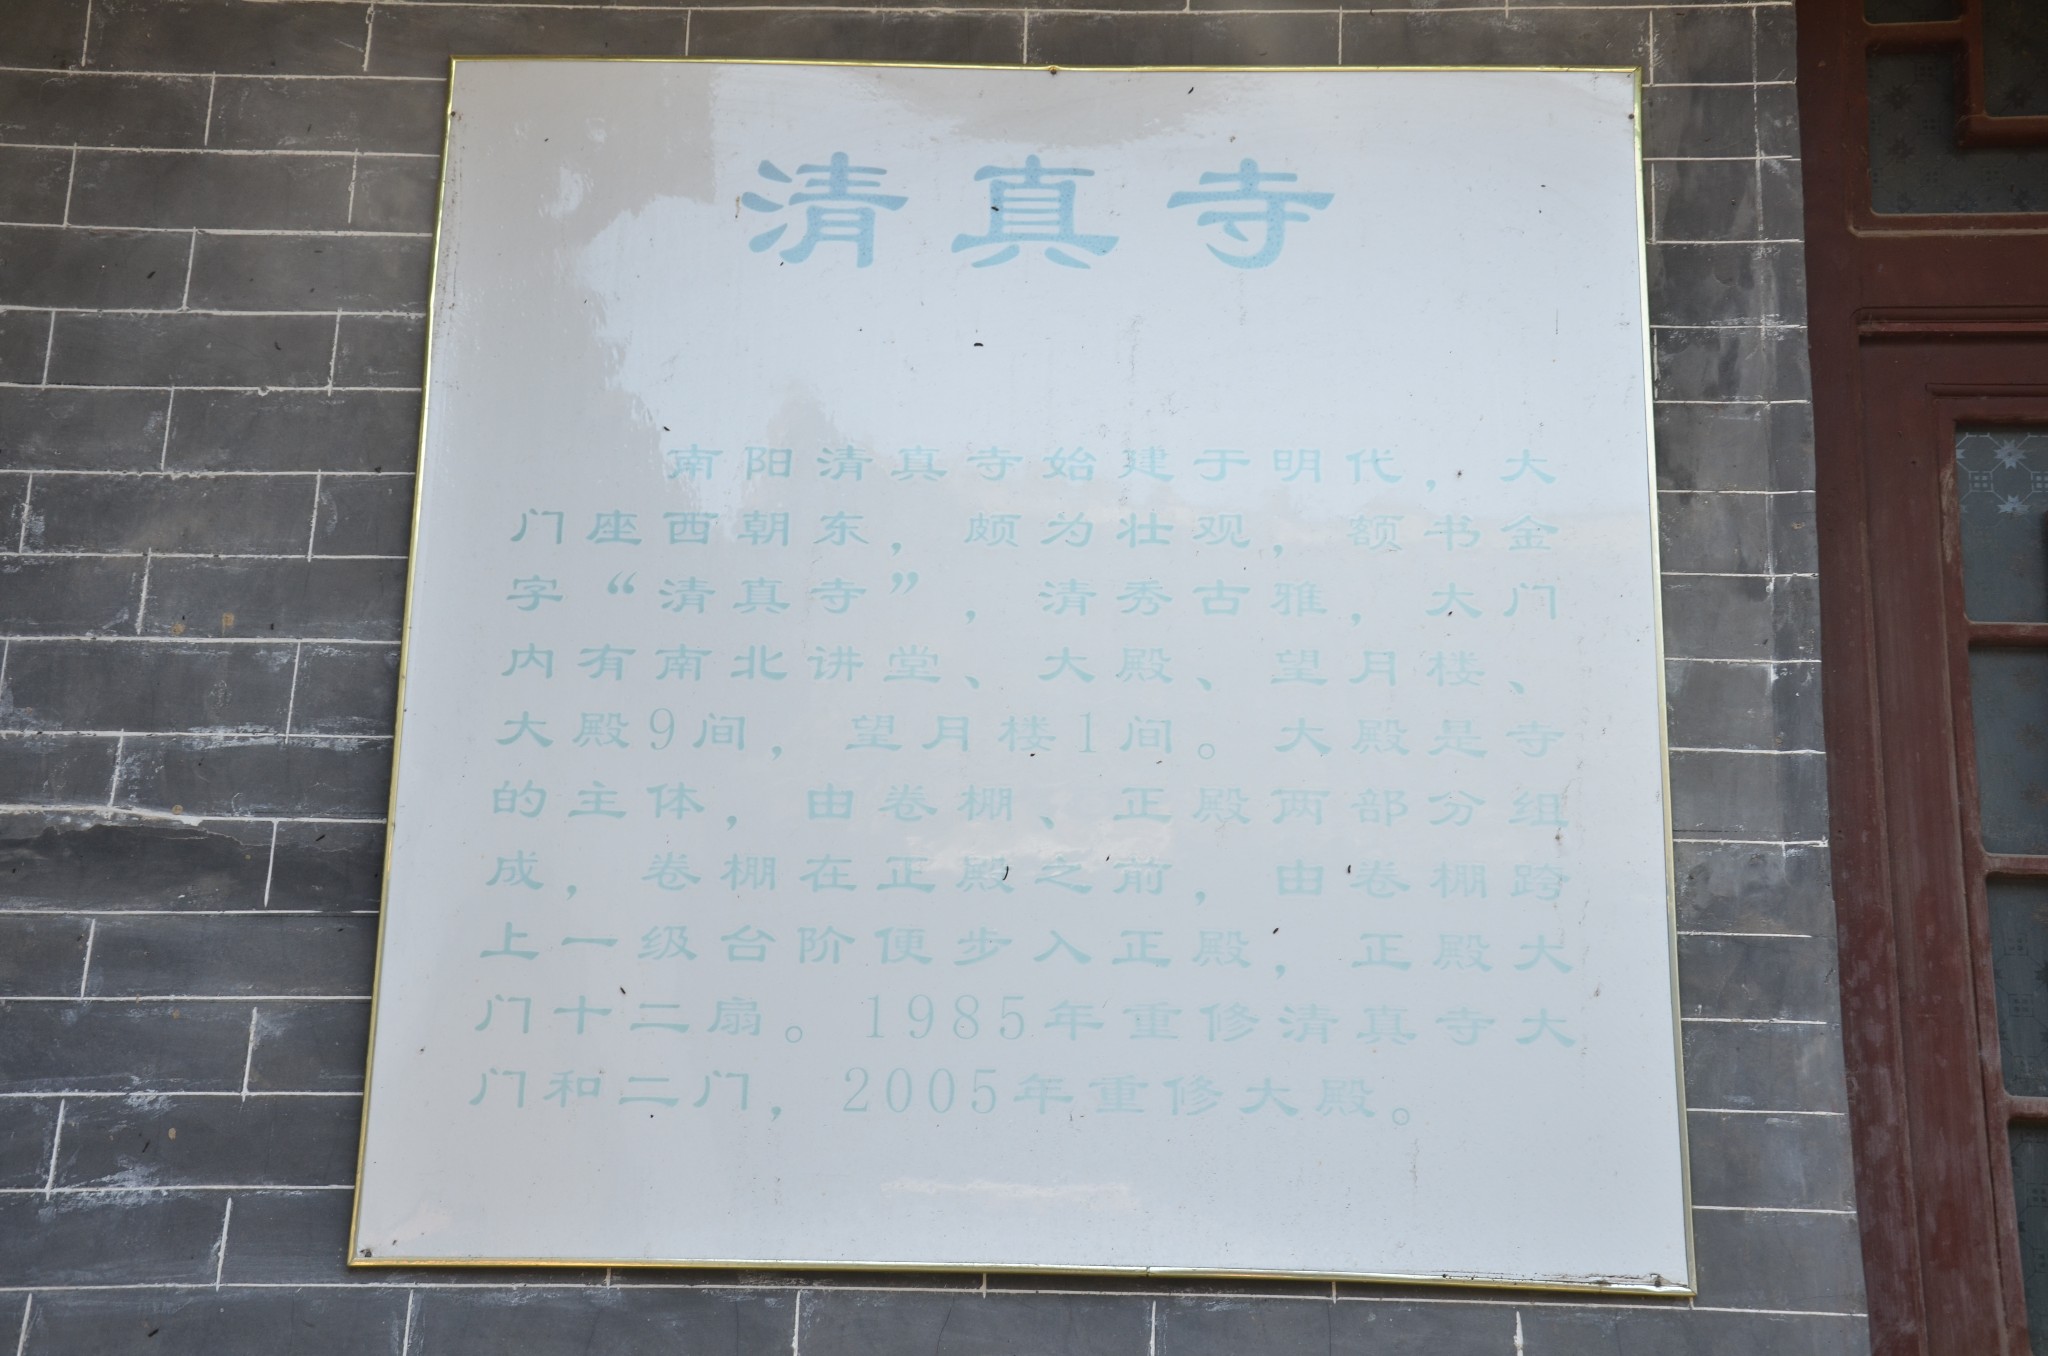 清真寺
南阳清真寺始建于明代，大
门座西朝东，颇为壮观，额书金
字“清真寺”，清秀古雅，大门
内有南北讲堂、大殿、望月楼、
大殿9间，望月楼1间。大殿是寺
的主体，由卷棚、正殿两部分组
成，卷棚在正殿之前，由卷棚跨
上一级台阶便步入正殿，正殿大
门十二扇。1985年重修清真寺大
门和二门，2005年重修大殿。